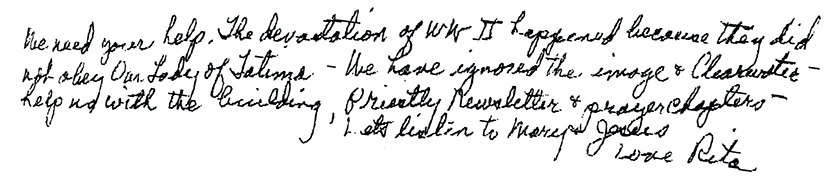 We need your help. The devastation of WW II happened because they did
not obey Our Lady of Fatima - We have ignored the image & Clearwater -
help us with the building, Priestly Newsletter & prayer chapters -
Let's listen to Mary & Jesus
Love Rita